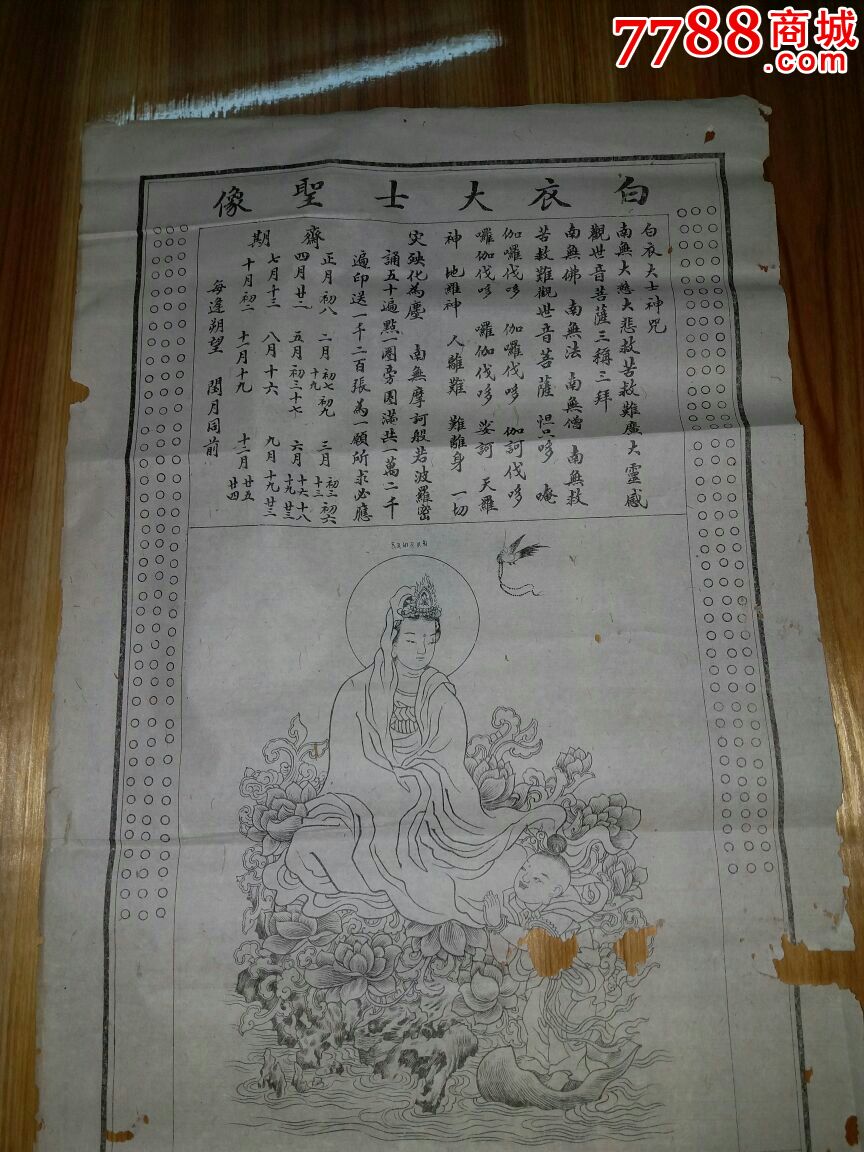 7788商城
.com
白衣大士聖像
白衣大士神咒
南無大慈大悲救苦救難廣大靈感
觀世音菩薩三稱三拜
南無佛 南無法 南無僧 南無救
苦救難觀世音菩薩 怛哆 唵
伽囉伐哆 伽囉伐哆 伽訶伐哆
囉伽伐哆 囉伽伐哆 娑訶 天羅
神 地羅神 人離難 難離身 一切
災殃化為塵 南無摩訶般若波羅密
誦五十遍點一圈旁圈滿共一萬二千
遍印送一千二百張為一願所求必應
齋期
正月初八 二月初七初九十九 三月初三初六十三
四月廿二 五月初三十七 六月十六十八十九廿三
七月十三 八月十六 九月十九廿三
十月初二 十一月十九 十二月廿五廿四
每逢朔望 閏月同前